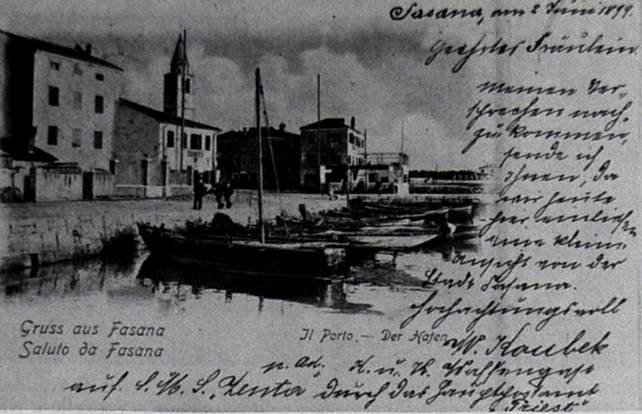 Fasana, am 2 Juni 1899.
Geehrtes Fräulein
Meinen Ver-
sprechen nach-
zukommen,
sende ich
Ihnen, da
wir heute
hier einliefen
eine kleine
Ansicht von der
Stadt Fasana.
Hochachtungsvoll
W. Koubek
Gruss aus Fasana
Saluto da Fasana
Il Porto. — Der Hafen
k. u. k.
auf S. M. S. „Zenta" durch das Hauptpostamt
Triest